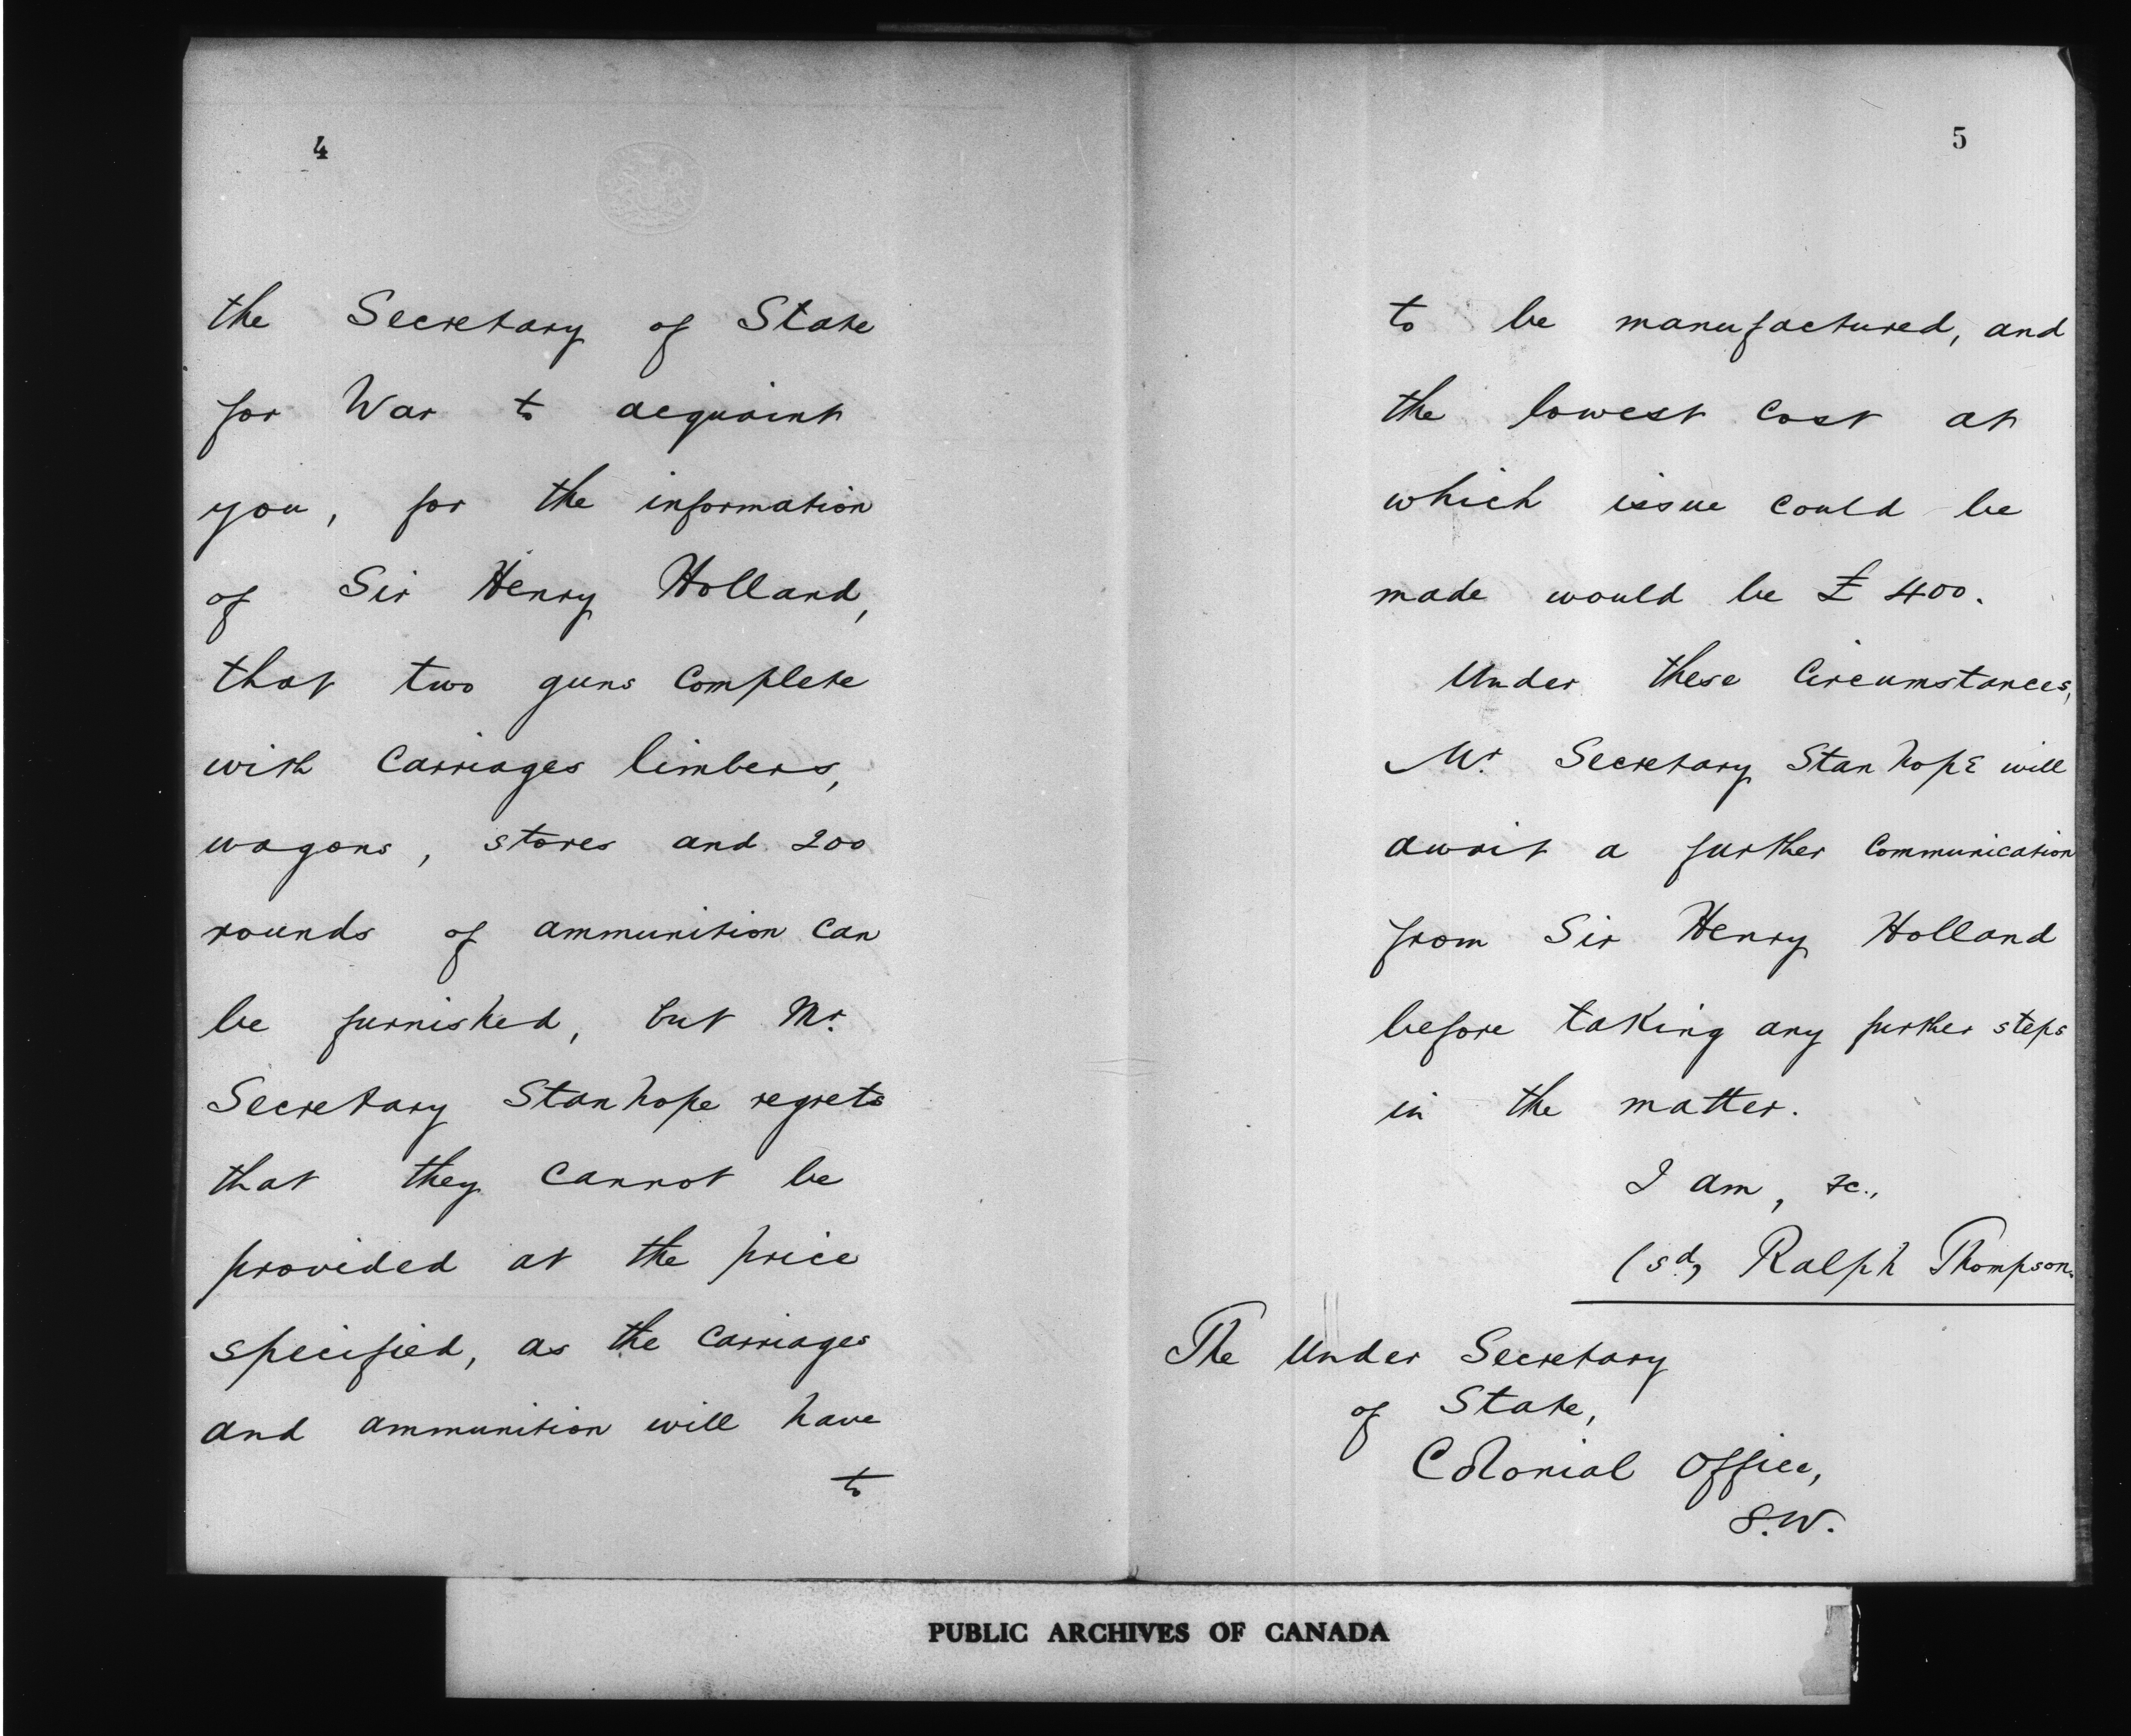 4
the Secretary of State
for War to acquaint
you, for the information
of Sir Henry Holland,
that two guns complete
with Carriages limbers,
wagons, stores and 200
rounds of ammunition can
be furnished, but Mr.
Secretary Stanhope regrets
that they cannot be
provided at the price
specified, as the carriages
and ammunition will have
to
5
to be manufactured, and
the lowest cost at
which issue could be
made would be £400.
Under these Circumstances,
Mr. Secretary Stanhope will
await a further Communication
from Sir Henry Holland
before taking any further steps
in the matter.
I am, &c.,
(sd) Ralph Thompson.
The Under Secretary
of State,
Colonial Office,
S.W.
PUBLIC ARCHIVES OF CANADA